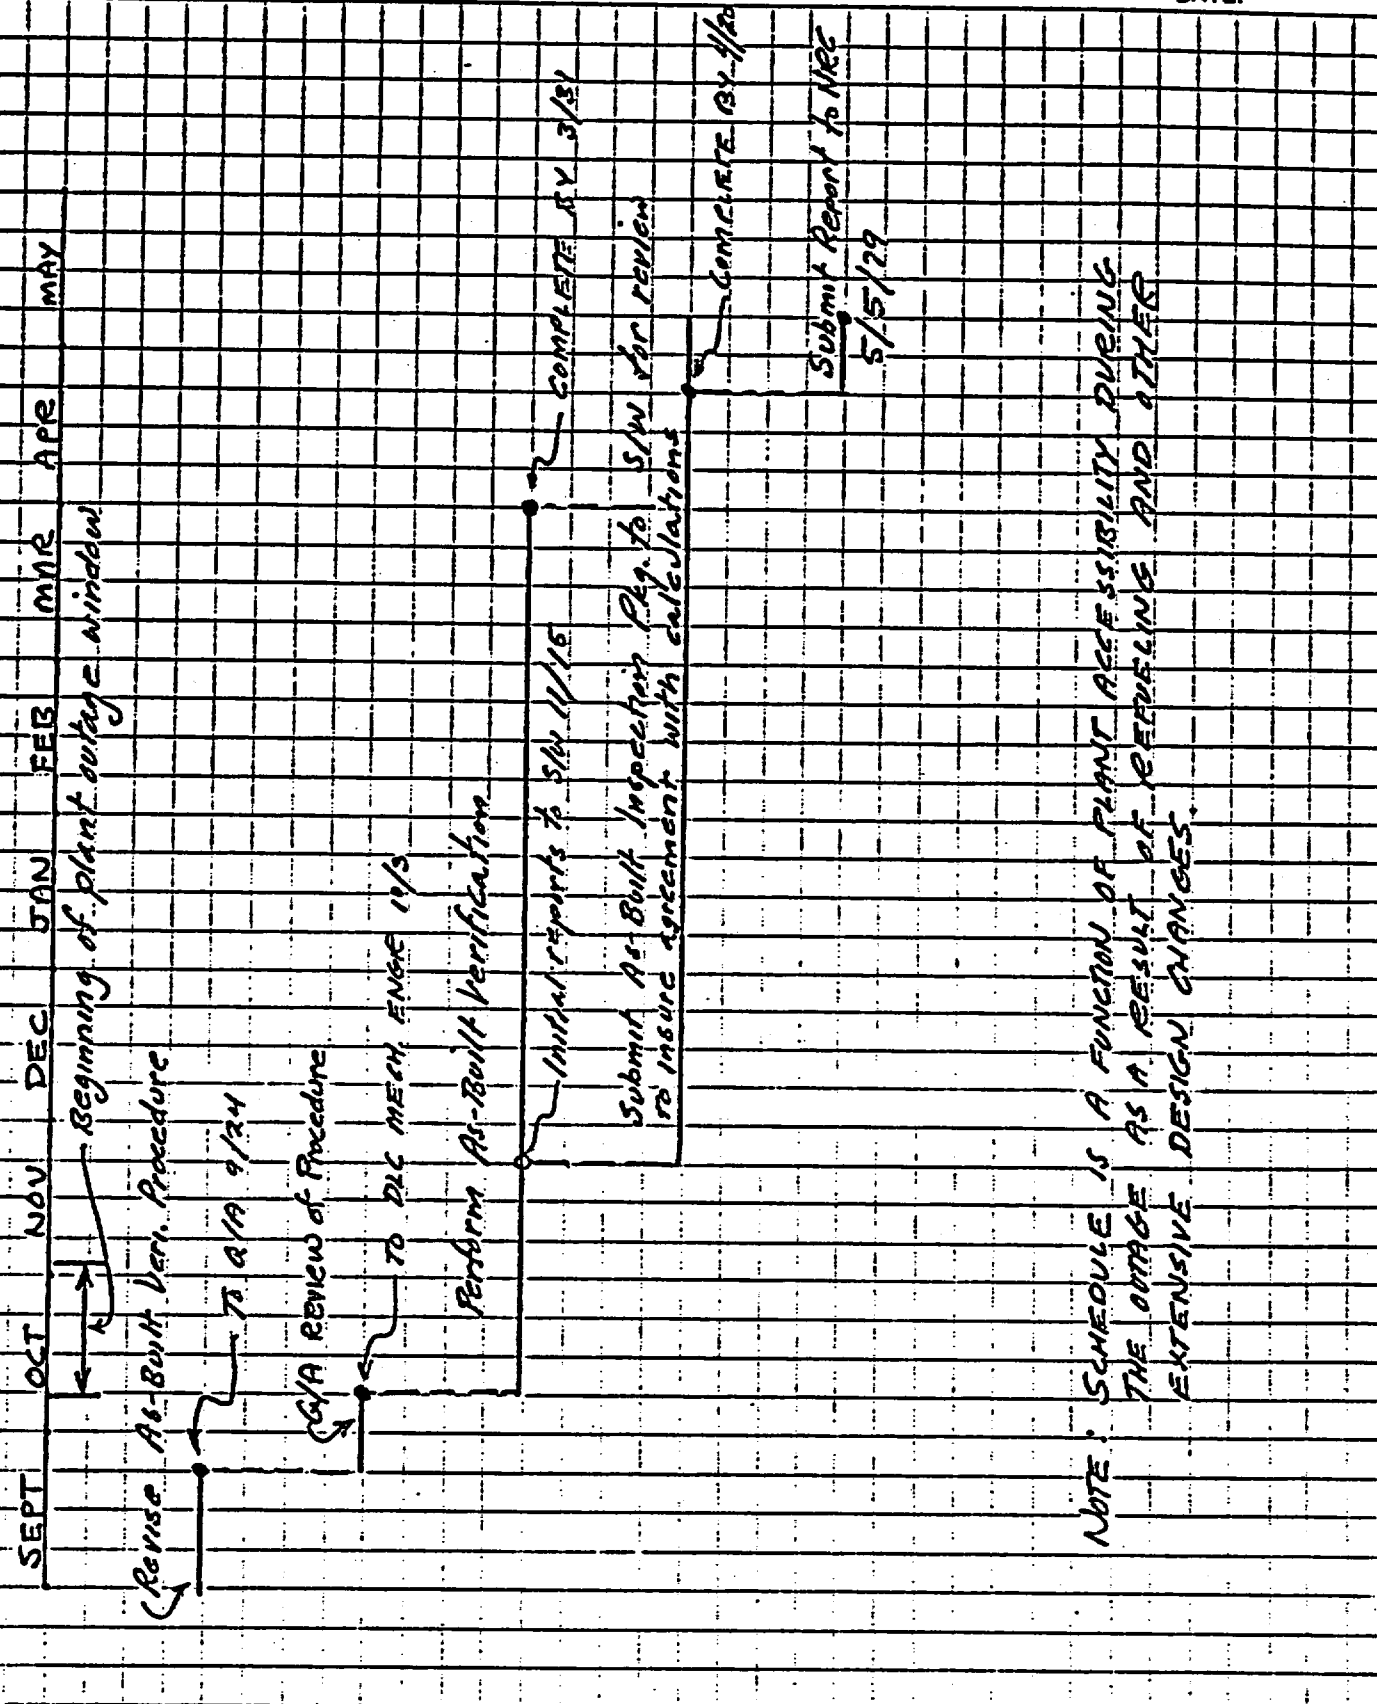 DATE:
SEPT OCT NOV DEC JAN FEB MAR APR MAY
Beginning of plant outage window
Revise As-Built Veri. Procedure
To Q/A 9/24
Q/A Review of Procedure
TO DLC MECH. ENGR 10/3
Perform As-Built Verification
Initial reports to S/W 11/15
COMPLETE BY 3/31
Submit As-Built Inspection Pkg. to S/W for review
to insure agreement with calculations
COMPLETE BY 4/20
Submit Report to NRC
5/5/79
NOTE: SCHEDULE IS A FUNCTION OF PLANT ACCESSIBILITY DURING
THE OUTAGE AS A RESULT OF REFUELING AND OTHER
EXTENSIVE DESIGN CHANGES.